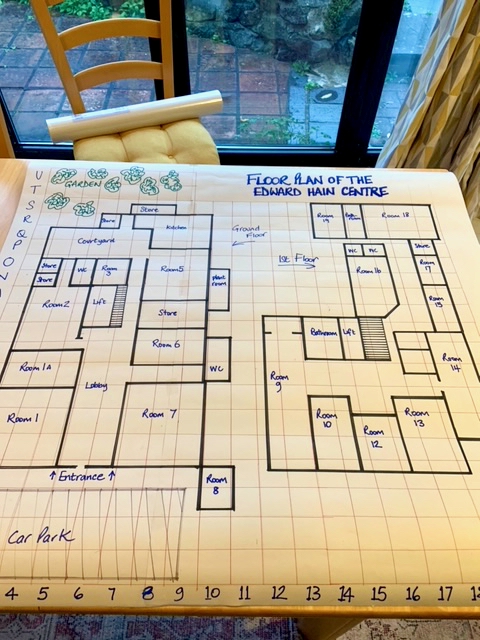 FLOOR PLAN OF THE
EDWARD HAIN CENTRE
U
T
S
R
Q
P
O
N
GARDEN
Store
Store
Kitchen
Courtyard
Ground
Floor
Store
Store
WC
Room
3
Room5
Plant
room
Room2
Lift
Store
Room 6
WC
Room 1A
Lobby
Room 1
Room 7
↑ Entrance ↑
Room
8
Car Park
1st Floor
Room
19
Room 18
WC
WC
Room 16
Store
Room
17
Room
15
Bathroom
Lift
Room
14
Room
9
Room
10
Room
12
Room
13
4 5 6 7 8 9 10 11 12 13 14 15 16 17 18